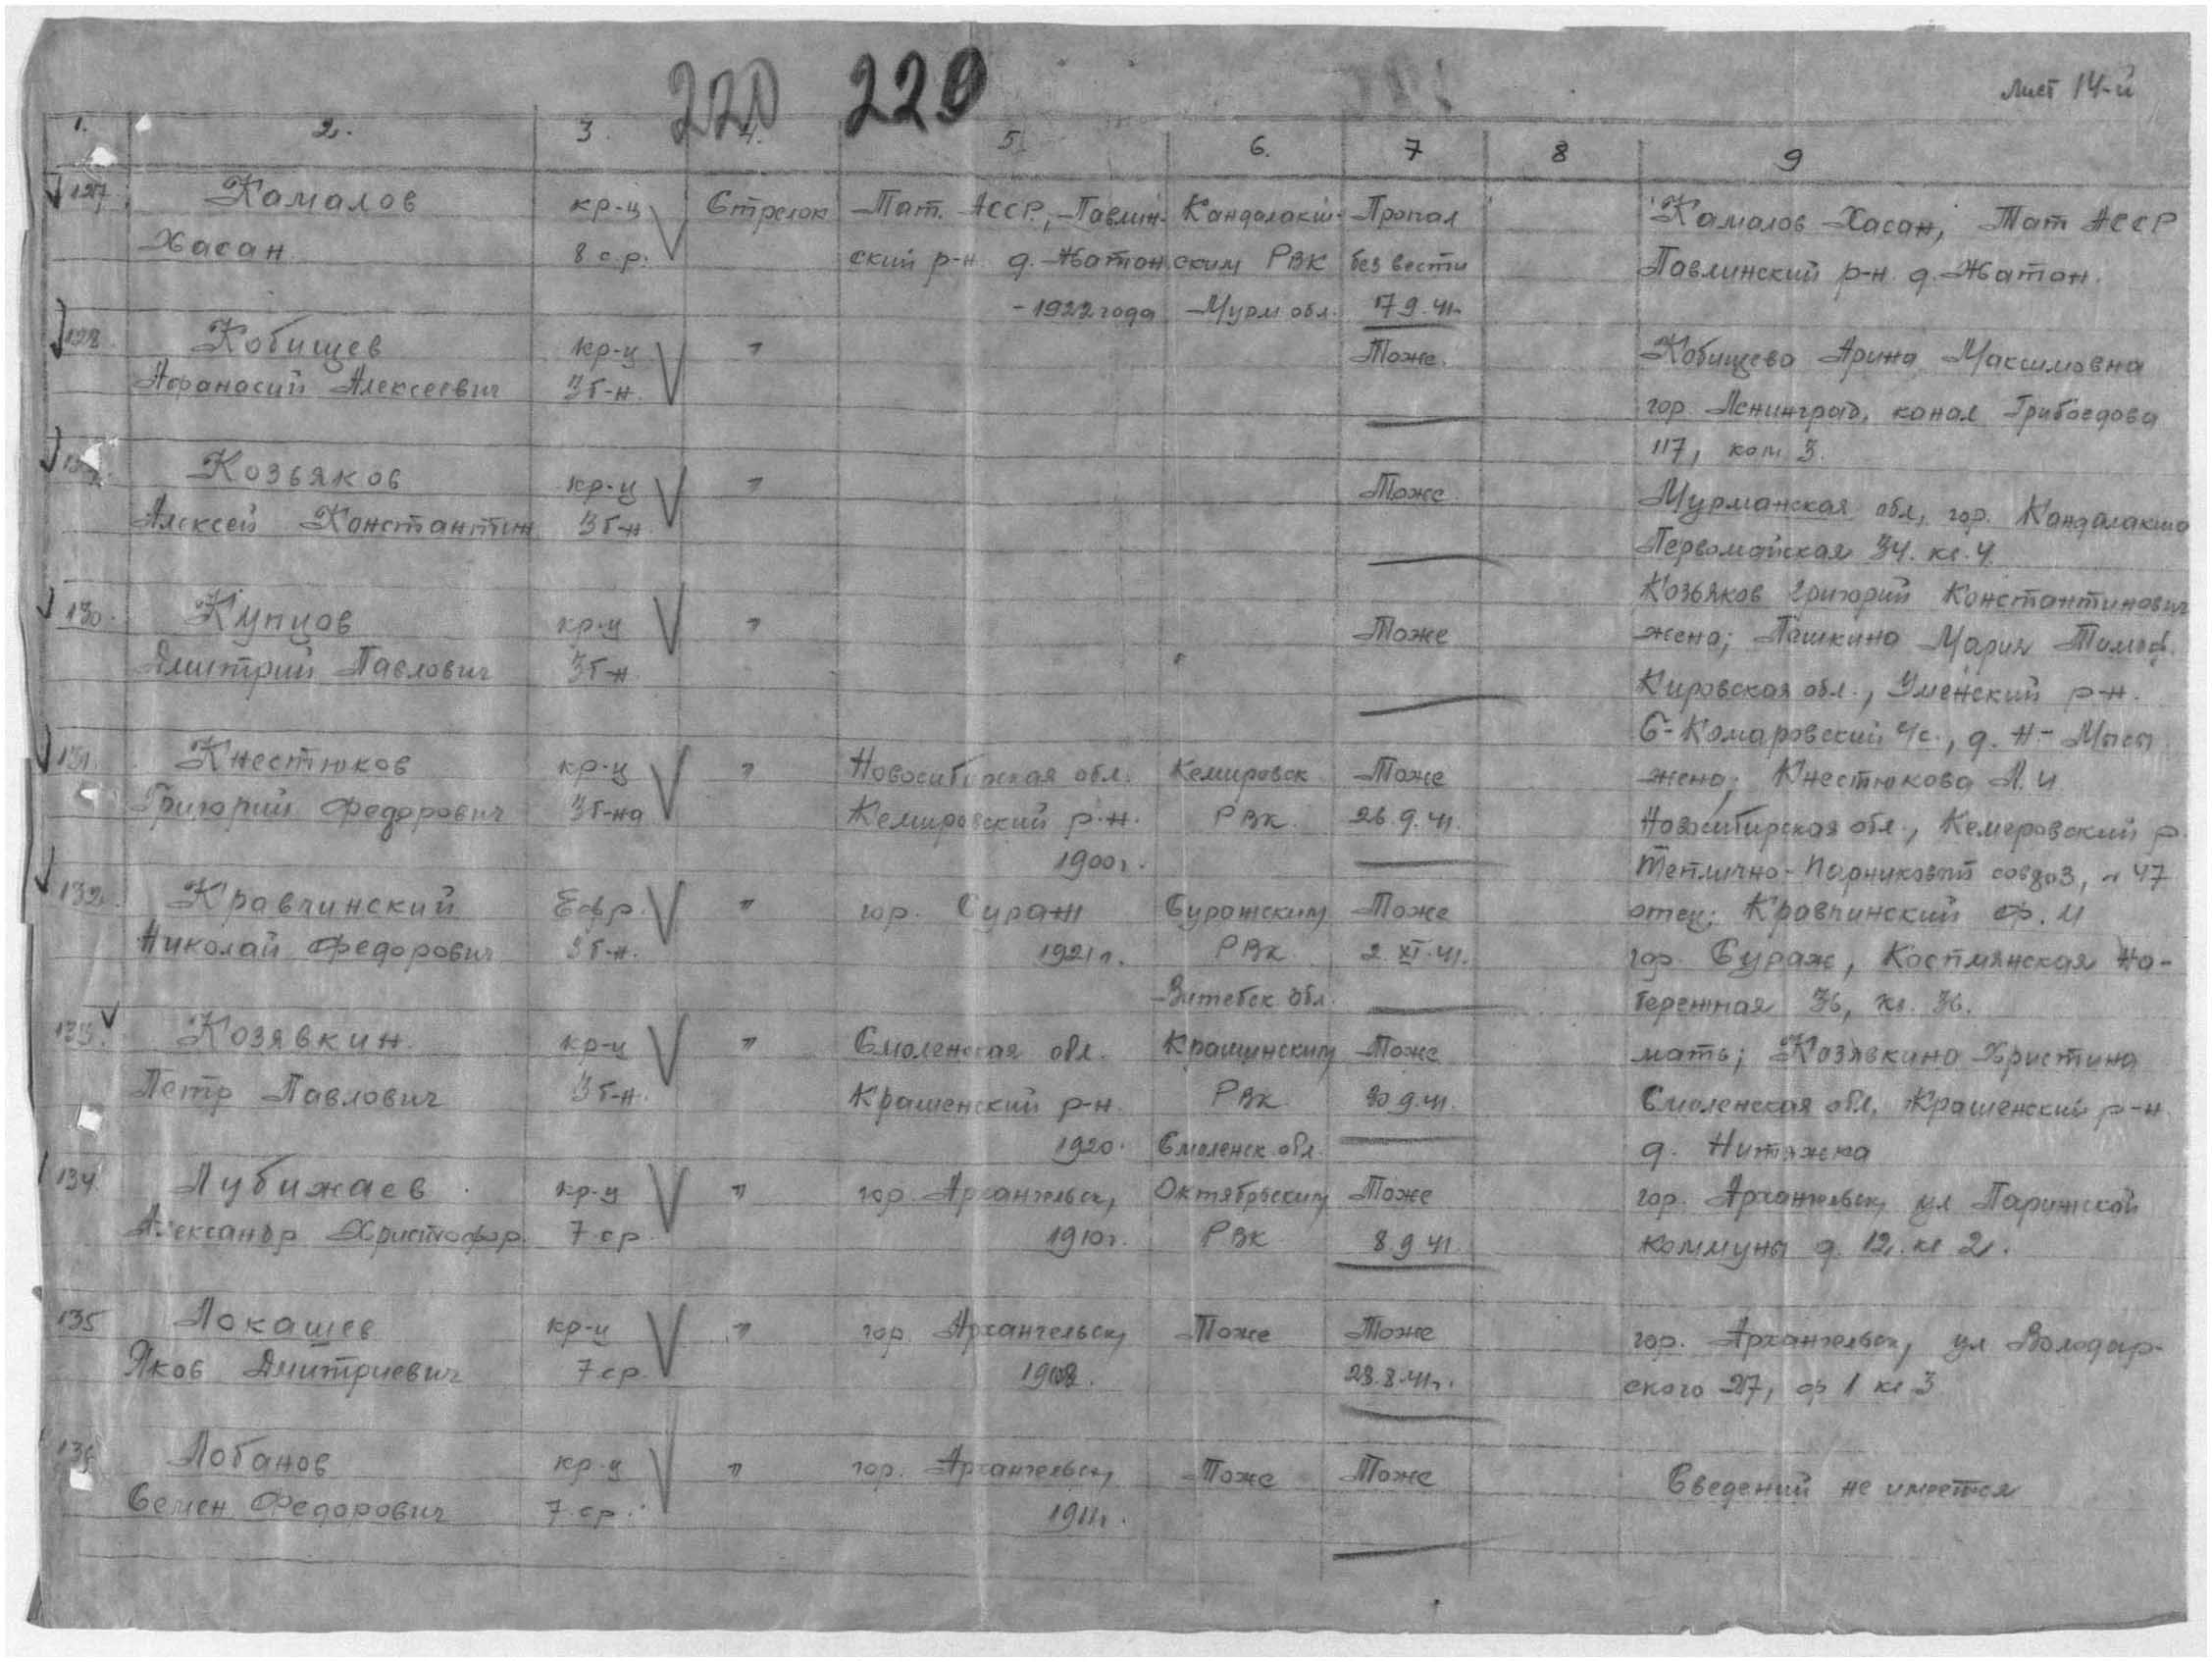 220 229
Лист 14-й
1. 2. 3. 4. 5. 6. 7 8 9
127. Камалов кр-ц Стрелок Тат. АССР, Павлин- Кандалакш- Пропал Камалов Хасан, Тат АССР
Хасан 8 с.р. ский р-н д. Жатон ским РВК без вести Павлинский р-н д. Жатон.
- 1922 года Мурм обл. 17 9. 41.
128. Кобищев кр-ц " Тоже. Кобищева Арина Максимовна
Афанасий Алексеевич 3 б-н. гор Ленинград, канал Грибоедова
117, ком 3.
Козьяков кр-ц " Тоже Мурманская обл, гор. Кандалакша
Алексей Константин 3 б-н Первомайская 34. кв. 4.
Козьяков Григорий Константинович
130. Купцов кр-ц " Тоже жена; Пашкина Мария Тимоф.
Дмитрий Павлович 3 б-н Кировская обл., р-н.
Комаровский с/с., д. Н-Мысы
131. Кнестюков кр-ц " Новосибирская обл. Кемировск Тоже жена; Кнестюкова А. И
Григорий Федорович 3 б-на Кемировский р-н. РВК 26. 9. 41. Новосибирская обл., Кемеровский р.
1900 г. Теплично-Парниковый совхоз, 47
132. Кравчинский Ефр. " гор. Сураж Суражским Тоже отец; Кравчинский Ф. И
Николай Федорович 3 б-н. 1921 г. РВК 2. XI. 41. гор. Сураж, На-
Витебск обл. бережная 36, кв. 36.
133. Козявкин кр-ц " Смоленская обл. Крашинским Тоже мать; Козявкина Христина
Петр Павлович 3 б-н. Крашенский р-н РВК 30 9. 41. Смоленская обл. Крашенский р-н
1920. Смоленск обл. д. Нитяжка
134. Лубижаев кр-ц " гор. Архангельск, Октябрьским Тоже гор. Архангельск, ул Парижской
Александр Христофор. 7 ср. 1910 г. РВК 8 9 41. Коммуны д. 12. кв 2.
135 Локашев кр-ц " гор. Архангельск, Тоже Тоже гор. Архангельск, ул Володар-
Яков Дмитриевич 7 ср. 1908. 28. 8. 41 г. ского 27, ф 1 кв 3
136 Лобанов кр-ц " гор. Архангельск, Тоже Тоже Сведений не имеется
Семен Федорович 7 ср. 1911 г.